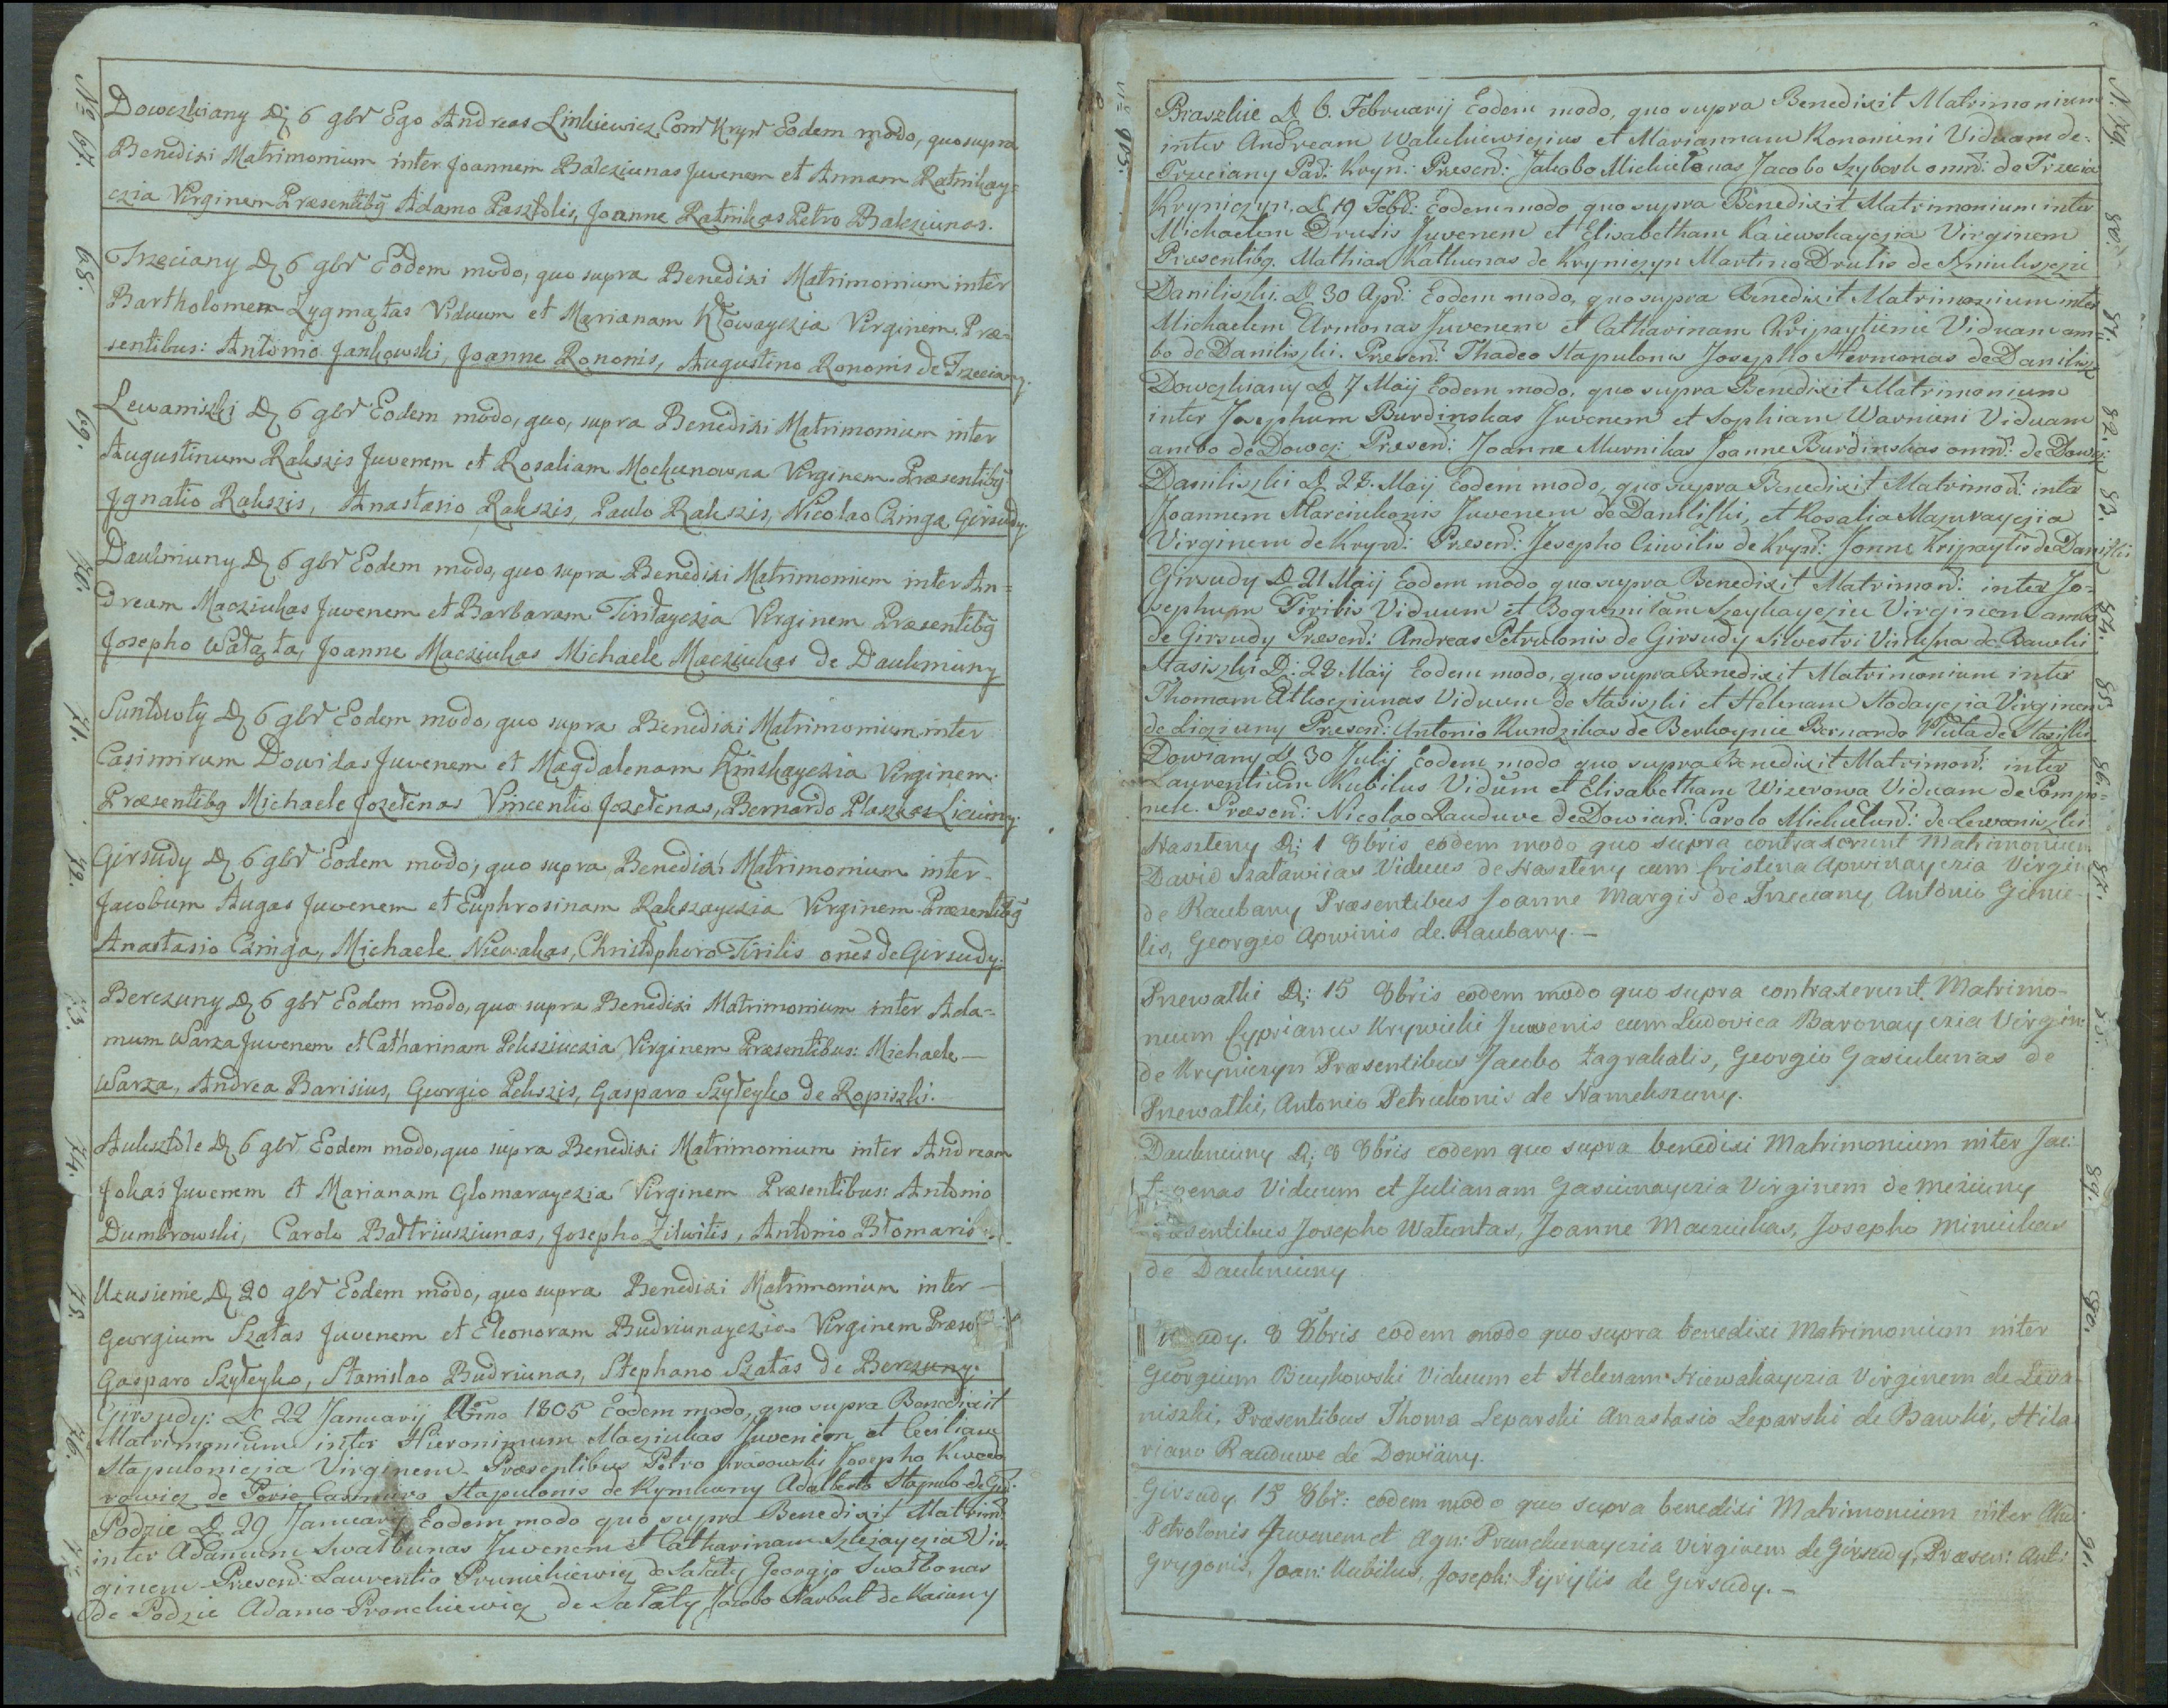 No 67.
Dowczkiany D. 6 9br Ego Andreas Linkiewicz Com Kryn Eodem modo, quo supra
Benedixi Matrimonium inter Joannem Balcziunas Juvenem et Annam Ratnikay=
czia Virginem Præsentibg Adamo Pasztolis, Joanne Ratnikas Petro Balcziunas.
68.
Trzeciany D. 6 9br Eodem modo, quo supra Benedixi Matrimonium inter
Bartholomen Zygmątas Viduum et Marianam Kłowayczia Virginem, Præ=
sentibus: Antonio Jankowski, Joanne Rononis, Augustino Rononis de Trzeciany.
69.
Lewaniszki D. 6 9br Eodem modo, quo, supra Benedixi Matrimonium inter
Augustinum Rakszis Juvenem et Rosaliam Mockunowna Virginem. Præsentibg
Ignatio Rakszis, Anastasio Rakszis, Paulo Rakszis, Nicolao Czinga Girsudy.
70.
Daukniuny D. 6 9br Eodem modo, quo supra Benedixi Matrimonium inter An=
dream Macziukas Juvenem et Barbaram Tintayczia Virginem Præsentibg
Josepho Wałąta, Joanne Macziukas Michaele Macziukas de Daukniuny
71.
Suntowty D. 6 9br Eodem modo, quo supra Benedixi Matrimonium inter
Casimirum Dowidas Juvenem et Magdalenam Kinskayczia Virginem.
Præsentibg Michaele Jozefenas Vincentio Jozefenas, Bernardo Plaszkas Liciuny.
72.
Girsudy D. 6 9br Eodem modo, quo supra Benedixi Matrimonium inter
Jacobum Augas Juvenem et Euphrosinam Rakszayczia Virginem Præsentibg
Anastasio Czinga, Michaele Niewakas, Christophoro Tirilis ones de Girsudy.
73.
Berczuny D. 6 9br Eodem modo, quo supra Benedixi Matrimonium inter Ada=
mum Warza Juvenem et Catharinam Peksziuczia Virginem Præsentibus: Michaele
Warza, Andrea Barisius, Georgio Pekszis, Gasparo Szyłeyko de Ropiszki.
74.
Auksztole D. 6 9br Eodem modo, quo supra Benedixi Matrimonium inter Andream
Jokas Juvenem et Marianam Glomarayczia Virginem Præsentibus: Antonio
Dumbrowski, Carolo Baltriusziunas, Josepho Zilwitis, Antonio Błomaris
75.
Uzusienie D. 20 9br Eodem modo, quo supra Benedixi Matrimonium inter
Georgium Szatas Juvenem et Eleonoram Budriunayczia Virginem Præse
Gasparo Szyłeyko, Stanislao Budriunas, Stephano Szatas de Berczuny.
76.
Girsudy: D. 22 Januarij Anno 1805 Eodem modo, quo supra Benedixit
Matrimonium inter Hieronimum Macziukas Juvenem et Ceciliam
Stapuloniczia Virginem. Præsentibus Petro Krasowski Josepho Kwaed
rowicz de Porie Casimiro Stapulonis de Rymkuny Adalberto Stapulo de Gud.
77.
Podzie D. 29 Januarij Eodem modo quo supra Benedixit Matrim:
inter Adamum Swatbunas Juvenem et Catharinam Szlejayczia Vir=
ginem. Presen: Laurentio Prunckiewicz de Sałaty, Georgio Swatbonas
de Podzie Adamo Pronckiewicz de Sałaty, Jacobo Narbut de Kaiuny
N. 79.
Braszkie D. 6. Februarij Eodem modo, quo supra Benedixit Matrimonium
inter Andream Walukiewiczius et Mariannam Rononieni Viduam de.
Trzeciany Par: Kryn: Presen: Jakobo Michielonas Jacobo Szybork omn: de Trzecia
80.
Kryniczyn. D. 19 Febr: Eodem modo quo supra Benedixit Matrimonium inter
Michaelem Drutis Juvenem et Elisabetham Kaiewskayczia Virginem
Præsentibg. Mathias Kathunas de Kryniczyn Martino Drutis de Szniukszczie
81.
Daniliszki. D. 30 Apr: Eodem modo, quo supra Benedixit Matrimonium inter
Michaelem Urmonas Juvenem et Catharinam Kripaytienie Viduam am=
bo de Daniliszki. Presen: Thadeo Stapulonis Josepho Hermonas de Danilisz
82.
Dowczkiany D. 7 Maij Eodem modo, quo supra Benedixit Matrimonium
inter Josephum Burdinskas Juvenem et Sophiam Warnieni Viduam
ambo de Dowcz: Presen: Joanne Murnikas Joanne Burdinskas omn: de Dowcz:
83.
Daniliszki D. 28. Maij Eodem modo, quo supra Benedixit Matrimon: inter
Joannem Marciukonis Juvenem de Daniliszki, et Rosalia Mazurayczia
Virginem de Kryn: Presen: Josepho Ciwilis de Kryn: Jonne Kripaytis de Daniszki
84.
Girsudy D. 21 Maij Eodem modo quo supra Benedixit Matrimon: inter Jo=
sephum Tirilis Viduum et Bogumilam Szeykayczia Virginem ambo
de Girsudy Presen: Andreas Petrulonis de Girsudy Silvestri de Bawki
85.
Stasiszki D: 28 Maij Eodem modo, quo supra Benedixit Matrimonium inter
Thomam Atkocziunas Viduum de Stasiszki et Helenam Stodayczia Virginem
de Licziuny Presen: Antonio Kundzikas de Berkaynie Bernardo Pluta de Stasiszki
86.
Dowiany D. 30 Julij Eodem modo quo supra Benedixit Matrimon: inter
Laurentium Kubilus Vidum et Elisabetham Wizerowa Viduam de Pomp=
nele. Præsen: Nicolao Rauduve de Dowian: Carolo Michielun: de Lewaniszki
87.
Naszleny D: 1 8bris eodem modo quo supra contraxerunt Matrimonium
David Szatawiias Viduus de Naszleny cum Cristina Apwinayczia Virgin
de Raubany Præsentibus Joanne Margis de Trzeciany, Antonio Gienie-
lis, Georgio Apwinis de Raubany.
88.
Przewalki D: 15 8bris eodem modo quo supra contraxerunt Matrimo-
nium Cyprianus Krywicki Juvenis cum Ludovica Baronayczia Virgin:
de Kryniczyn Præsentibus Jacobo Zagrakalis, Georgio Gasiulunas de
Przewalki, Antonio Petrukonis de Namekszuny.
89.
Daukniuny D: 8 8bris eodem quo supra benedixi Matrimonium inter Jac:
Viduum et Julianam Gasiunayczia Virginem de Meziuny
sentibus Josepho Watuntas, Joanne Macziukas, Josepho Miniukas
de Daukniuny
90.
udy. 8 8bris eodem modo quo supra benedixi Matrimonium inter
Georgium Buykowski Viduum et Helenam Niewakayczia Virginem de Lewa
niszki, Præsentibus Thoma Leparski Anastasio Leparski de Bawki, Hila
riano Rauduwe de Dowiany.
91.
Girsudy 15 8br: eodem modo quo supra benedixi Matrimonium inter And:
Petrolonis Juvenem et Agn: Prunckunayczia virginem de Girsudy, Præsen: Ant:
Grygoris, Joan: Kubilus, Joseph: Tyrylis de Girsudy.